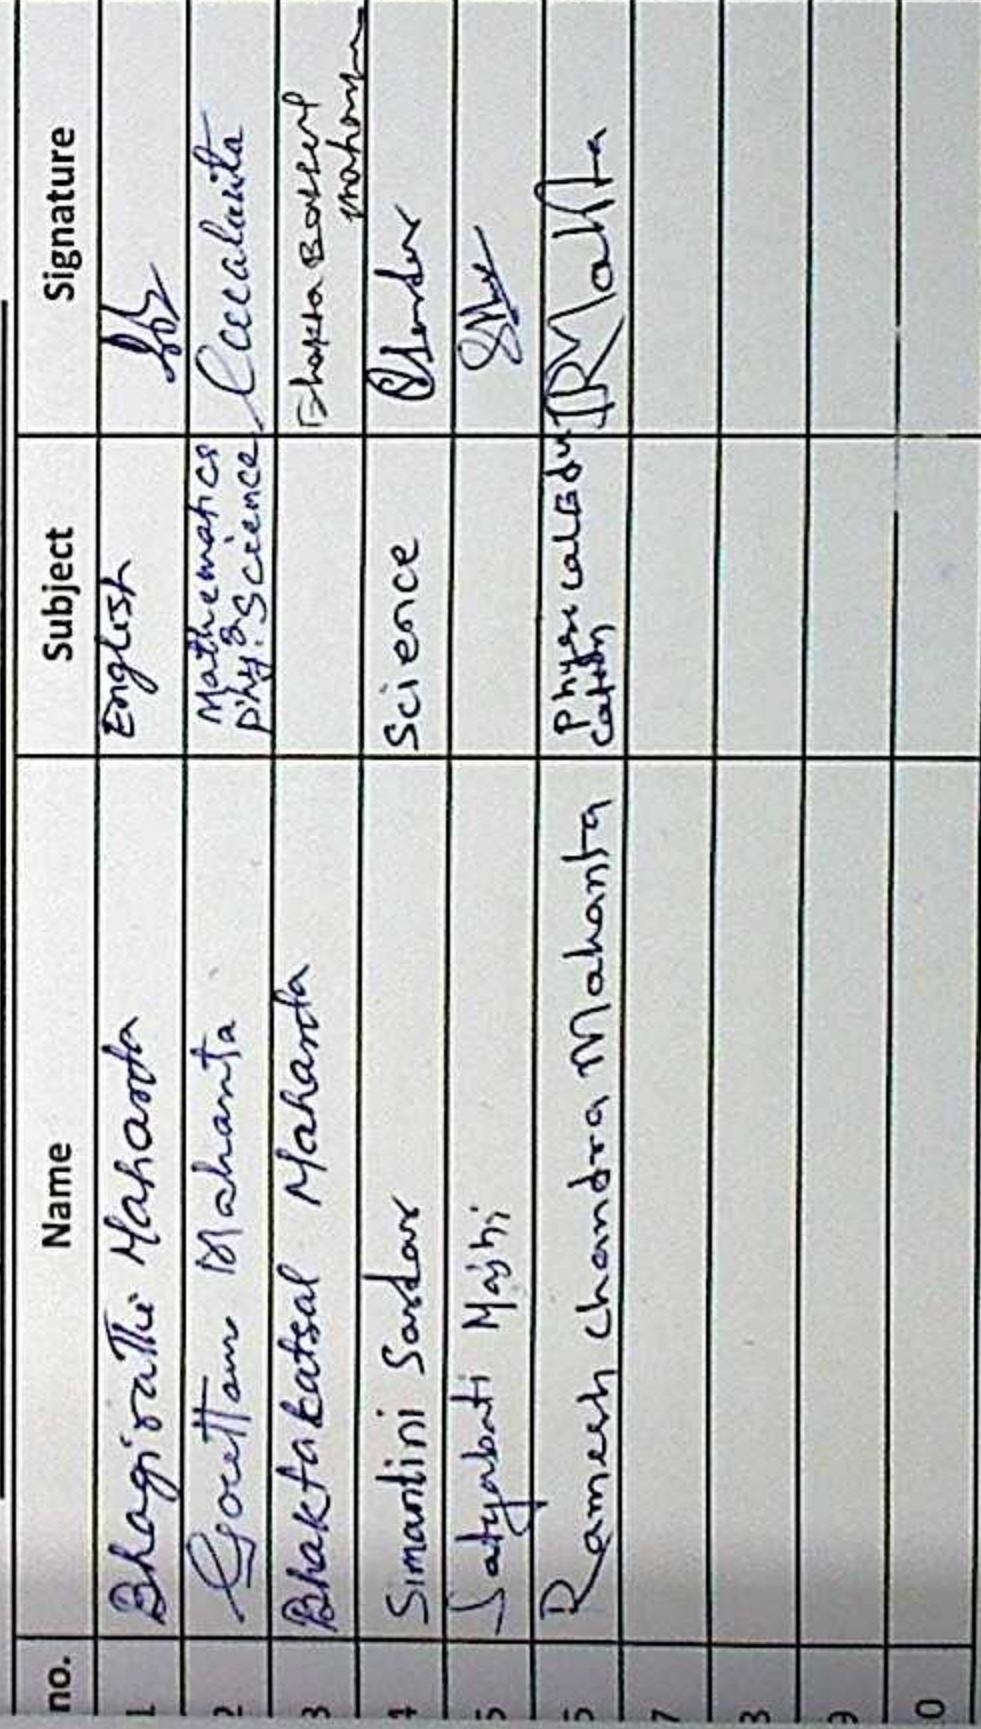 no. Name Subject Signature
1 Bhagirathi Mahanta English
2 Gouttam Mahanta Mathematics & Phy. Science
3 Bhaktabatsal Mahanta Bhakta Bassal mahanta
4 Simantini Sardar Science
5 Satyabati Majhi
6 Ramesh chandra Mahanta Physical Edu RMahta
cation
7
8
9
0